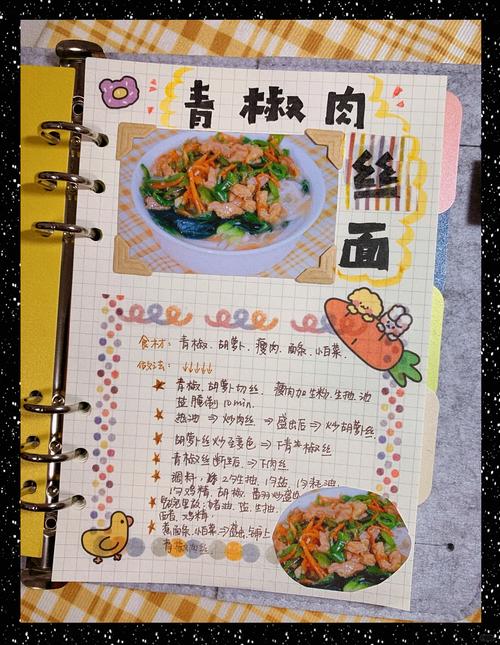 青椒肉
丝
面
食材：青椒、胡萝卜、瘦肉、面条、小白菜、
做法：↓↓↓↓↓
青椒、胡萝卜切丝，瘦肉加生粉、生抽、油
盐腌制 10min.
热油 ⇒ 炒肉丝 ⇒ 盛出后 ⇒ 炒胡萝卜丝.
胡萝卜丝炒至变色 ⇒ 下青椒丝
青椒丝断生后 ⇒ 下肉丝
调料: 2勺生抽, 1勺盐, 1勺耗油,
1勺鸡精, 胡椒,
猪油, 盐, 生抽,
鸡精.
煮面条、小白菜 ⇒ 盛出, 铺上
青椒肉丝